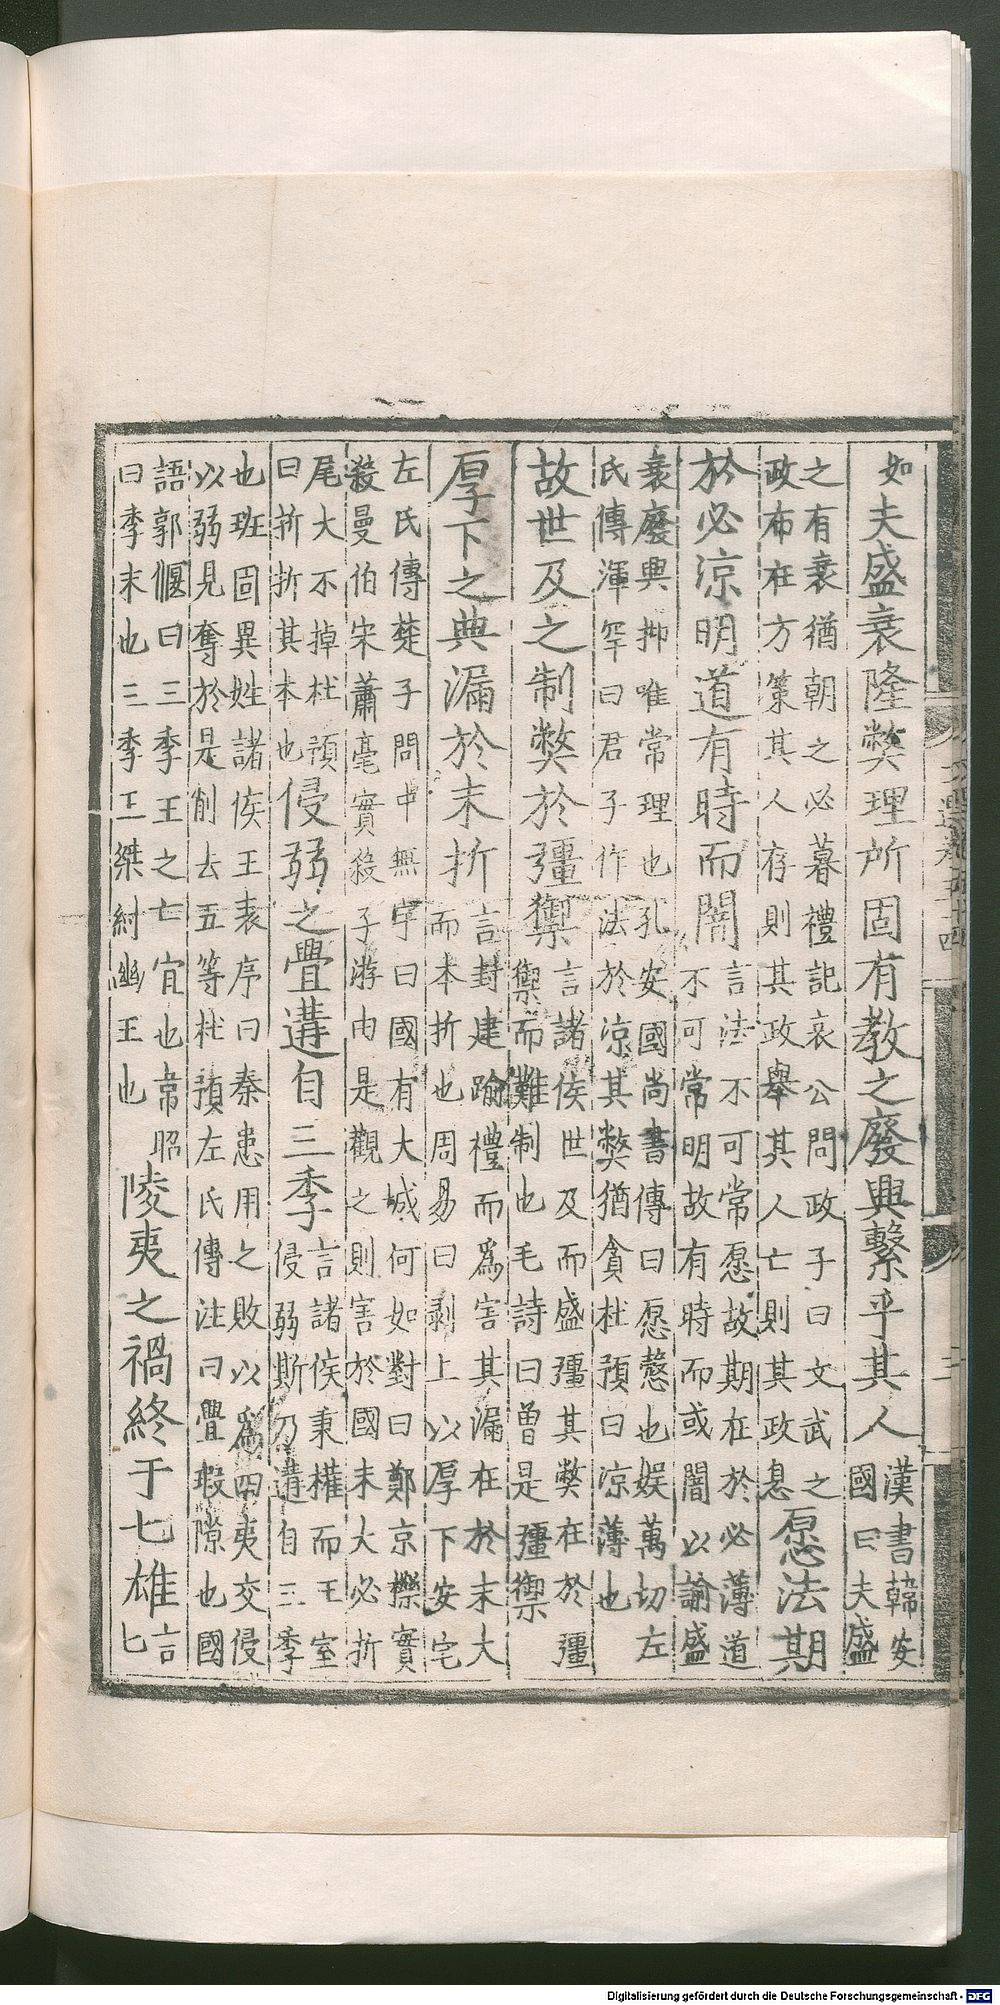 如夫盛衰隆弊理所固有教之廢興繫乎其人漢書韓安
國曰夫盛
之有衰猶朝之必暮禮記哀公問政子曰文武之
政布在方策其人存則其政舉其人亡則其政息愿法期
於必涼明道有時而闇言法不可常愿故期在於必薄道
不可常明故有時而或闇以諭盛
衰廢興抑唯常理也孔安國尚書傳曰愿愨也娛萬切左
氏傳渾罕曰君子作法於涼其弊猶貪杜預曰涼薄也
故世及之制弊於彊禦言諸侯世及而盛彊其弊在於彊
禦而難制也毛詩曰曾是彊禦
厚下之典漏於末折言封建踰禮而爲害其漏在於末大
而本折也周易曰剥上以厚下安宅
左氏傳楚子問申無宇曰國有大城何如對曰鄭京櫟實
殺曼伯宋蕭亳實殺子游由是觀之則害於國末大必折
尾大不掉杜預
曰折折其本也侵弱之舋遘自三季言諸侯秉權而王室
侵弱斯乃遘自三季
也班固異姓諸侯王表序曰秦患用之敗以爲四夷交侵
以弱見奪於是削去五等杜預左氏傳注曰舋瑕隙也國
語郭偃曰三季王之亡宜也韋昭
曰季末也三季王桀紂幽王也陵夷之禍終于七雄言
七
Digitalisierung gefördert durch die Deutsche Forschungsgemeinschaft - DFG